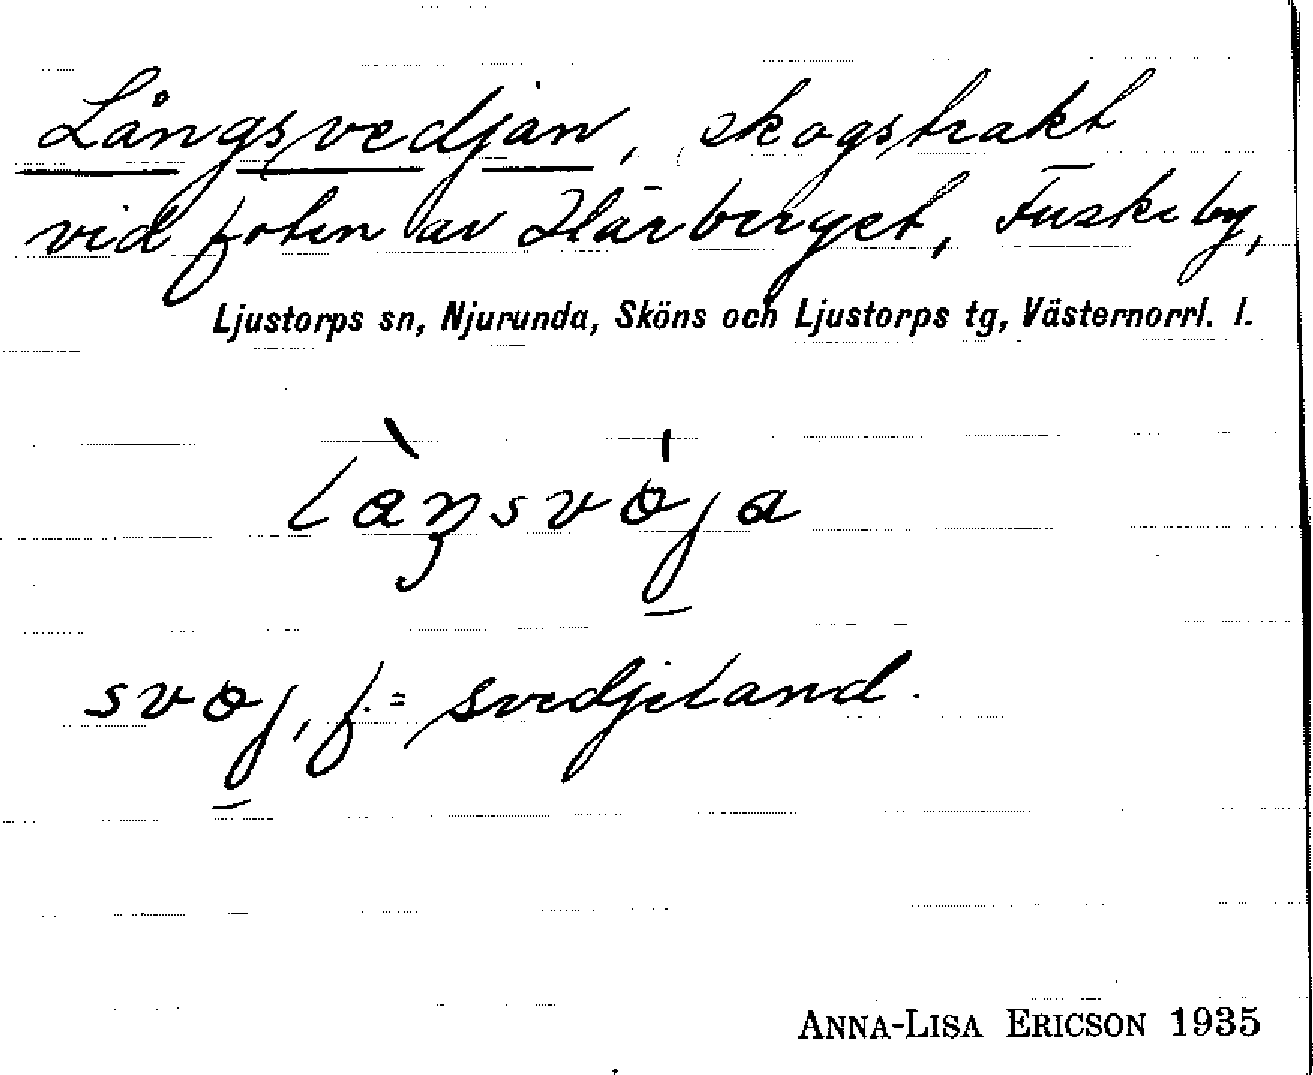 Långsvedjan, skogstrakt
vid foten av Härberget, Fuske by,
Ljustorps sn, Njurunda, Sköns och Ljustorps tg, Västernorrl. l.
svöj, f. = svedjeland.
ANNA-LISA ERICSON 1935